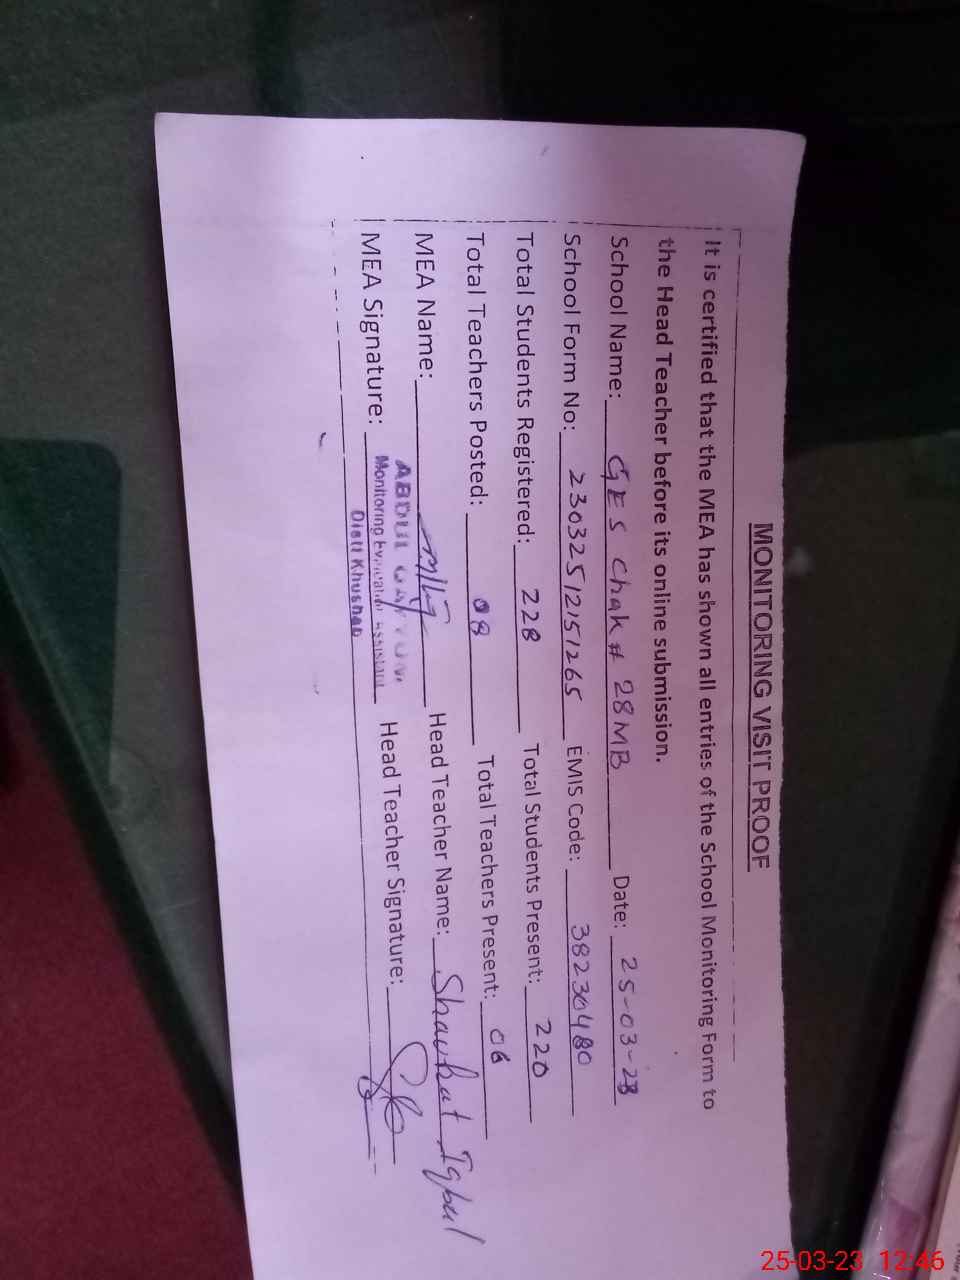 MONITORING VISIT PROOF
It is certified that the MEA has shown all entries of the School Monitoring Form to
the Head Teacher before its online submission.
School Name: GES Chak # 28MB Date: 25-03-23
School Form No: 23032512151265 EMIS Code: 38230480
Total Students Registered: 228 Total Students Present: 220
Total Teachers Posted: 08 Total Teachers Present: 06
MEA Name: Head Teacher Name: Shaukat Iqbal
ABDUL
MEA Signature: Monitoring Evaluation Assistant Head Teacher Signature:
Distt Khushab
25-03-23 12:46